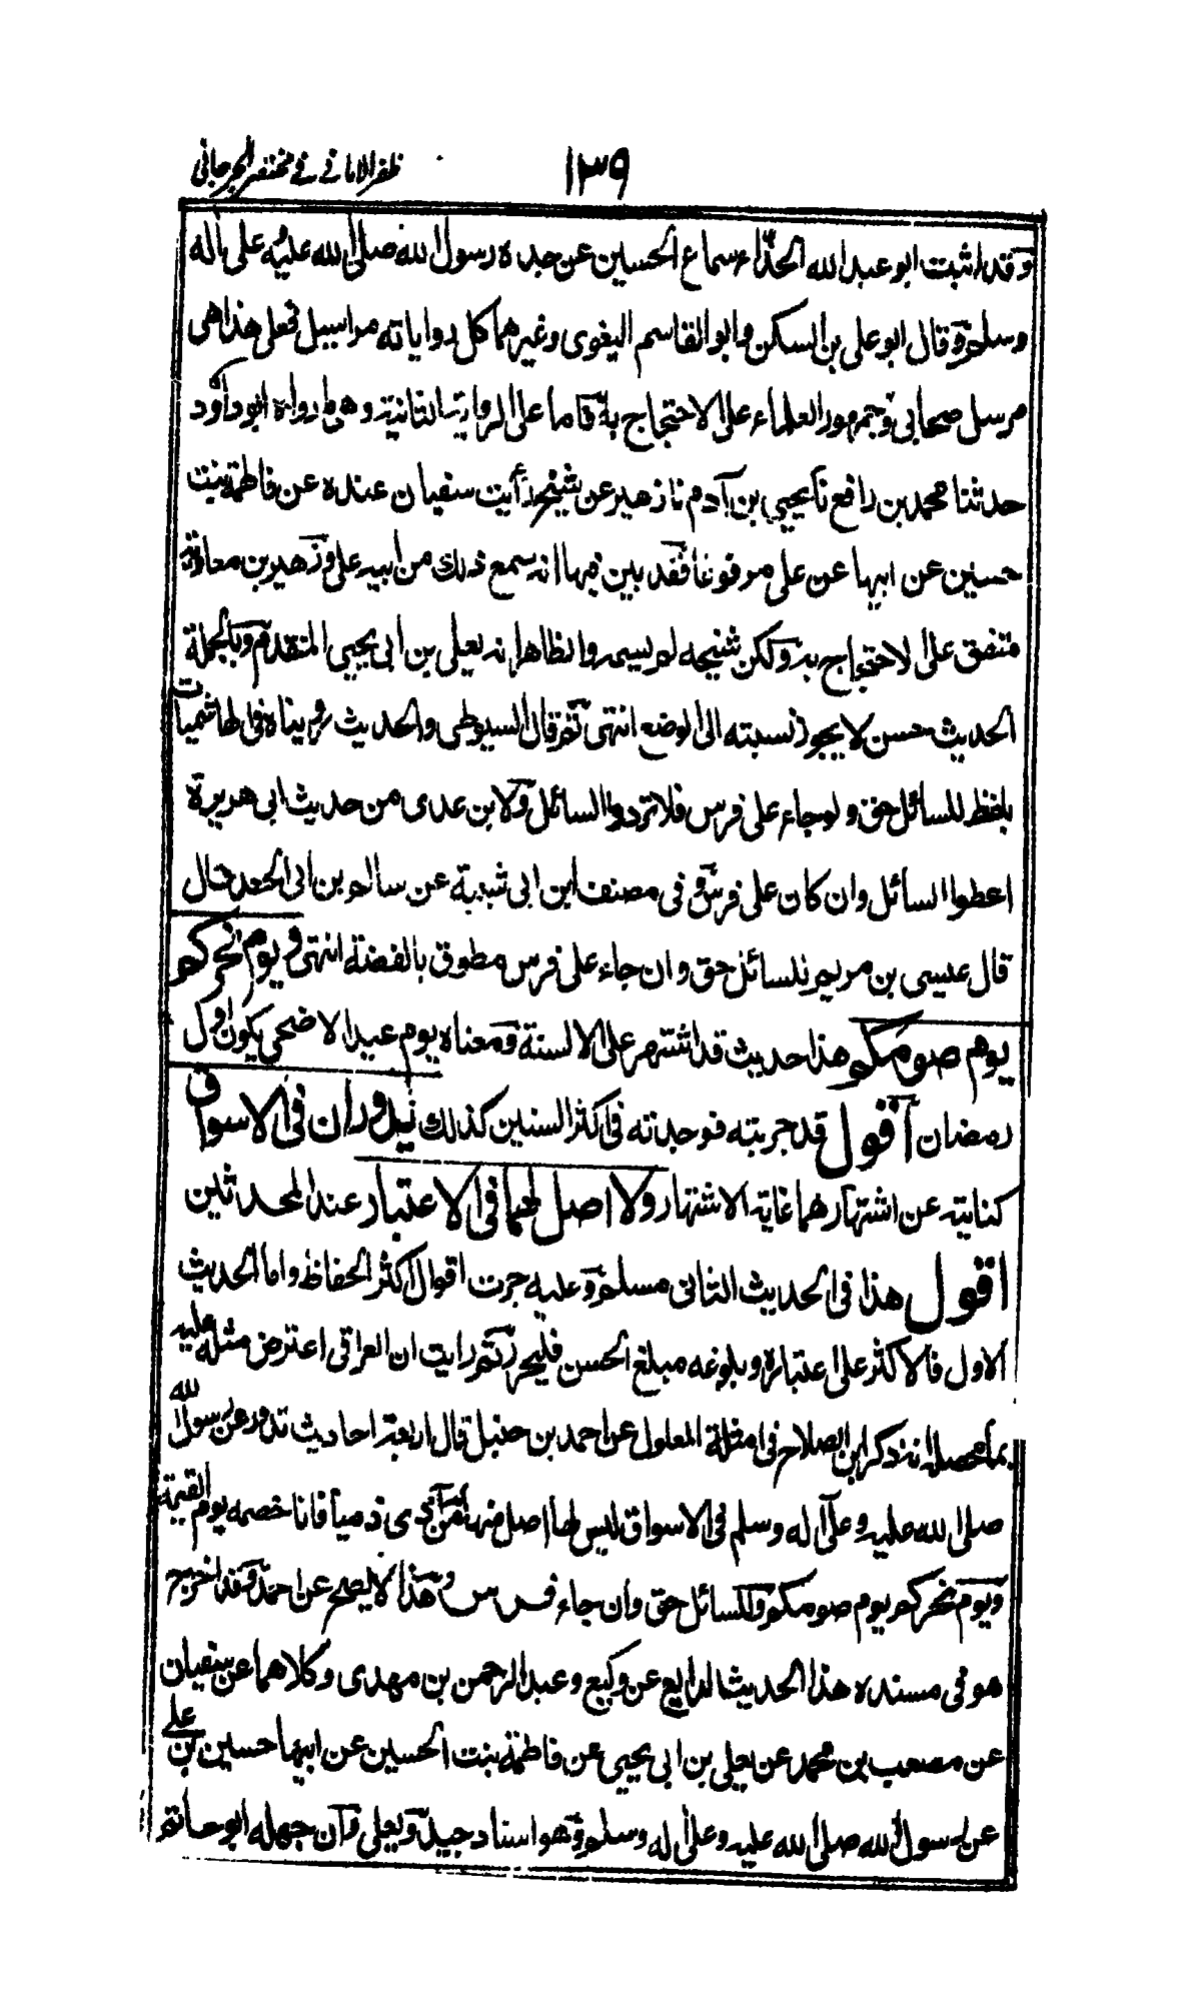 ١٣٩
ظفر الامانى فى مختصر الجرجانى
وقد اثبت ابو عبد الله الحذّاء سماع الحسين عن جده رسول الله صلى الله عليه وعلى آله
وسلم وقال ابو على بن السكن وابو القاسم البغوى وغيرهما كل رواياته مراسيل فعلى هذا هى
مرسل صحابى وجمهور العلماء على الاحتجاج به واما على الرواية الثانية وهى ما رواه ابو داود
حدثنا محمد بن رافع نا يحيى بن آدم نا زهير عن شيخ رأيت سفيان عنده عن فاطمة بنت
حسين عن ابيها عن على مرفوعا فقد بين فيها انه سمع ذلك من ابيه على وزهير بن معاوية
متفق على الاحتجاج به ولكن شيخه لم يسم والظاهر انه يعلى بن ابى يحيى المتقدم وبالجملة
الحديث حسن لا يجوز نسبته الى الوضع انتهى ثم قال السيوطى والحديث رويناه فى الهاشميات
بلفظ للسائل حق ولو جاء على فرس فلا تردوا السائل ولابن عدى من حديث ابى هريرة
اعطوا السائل وان كان على فرس وفى مصنف ابن ابى شيبة عن سالم بن ابى الجعد قال
قال عيسى بن مريم للسائل حق وان جاء على فرس مطوق بالفضة انتهى ويوم نحركم
يوم صومكم هذا حديث قد اشتهر على الالسنة ومعناه يوم عيد الاضحى يكون اول
رمضان اقول قد جربته فوجدته فى اكثر السنين كذلك يدوران فى الاسواق
كناية عن اشتهارهما غاية الاشتهار ولا اصل لهما فى الاعتبار عند المحدثين
اقول هذا فى الحديث الثانى مسلم وعليه جرت اقوال اكثر الحفاظ واما الحديث
الاول فالاكثر على اعتباره وبلوغه مبلغ الحسن فليحرر ثم رايت ان العراقى اعترض مثله عليه
بما محصله انه ذكر ابن الصلاح فى امثلة المعلول عن احمد بن حنبل قال اربعة احاديث تدور عن رسول الله
صلى الله عليه وعلى آله وسلم فى الاسواق ليس لها اصل منها من آذى ذميا فانا خصمه يوم القيمة
ويوم نحركم يوم صومكم وللسائل حق وان جاء فرس وهذا لا يصح عن احمد وقد اخرج
هو فى مسنده هذا الحديث الرابع عن وكيع وعبد الرحمن بن مهدى وكلاهما عن سفيان
عن مصعب بن محمد عن يعلى بن ابى يحيى عن فاطمة بنت الحسين عن ابيها حسين بن على
عن رسول الله صلى الله عليه وعلى آله وسلم وهو اسناد جيد ويعلى وان جهله ابو حاتم